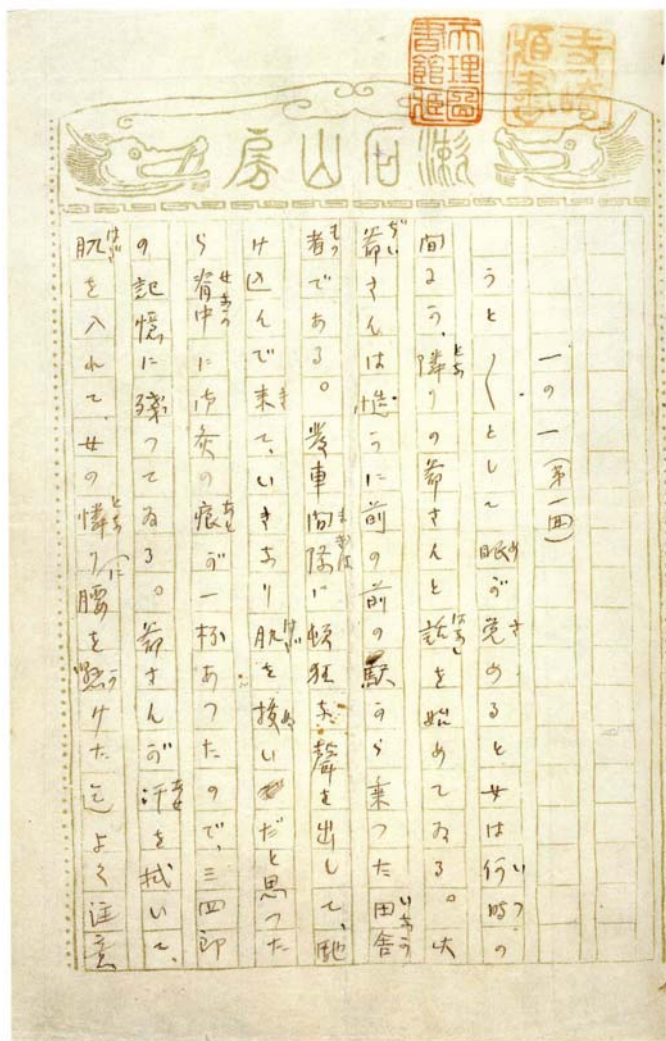 天理圖書館藏
漱石山房
一の一(第一回)
うと〳〵として眼が覚めると女は何時の
間にか、隣りの爺さんと話を始めてゐる。此
爺さんは慥かに前の前の駅から乗つた田舎
者である。発車間際に頓狂な聲を出して、馳
け込んで来て、いきなり肌を抜いだと思つた
ら脊中に御灸の痕が一杯あつたので、三四郎
の記憶に残つてゐる。爺さんが汗を拭いて、
肌を入れて、女の隣りに腰を懸けた迄よく注意